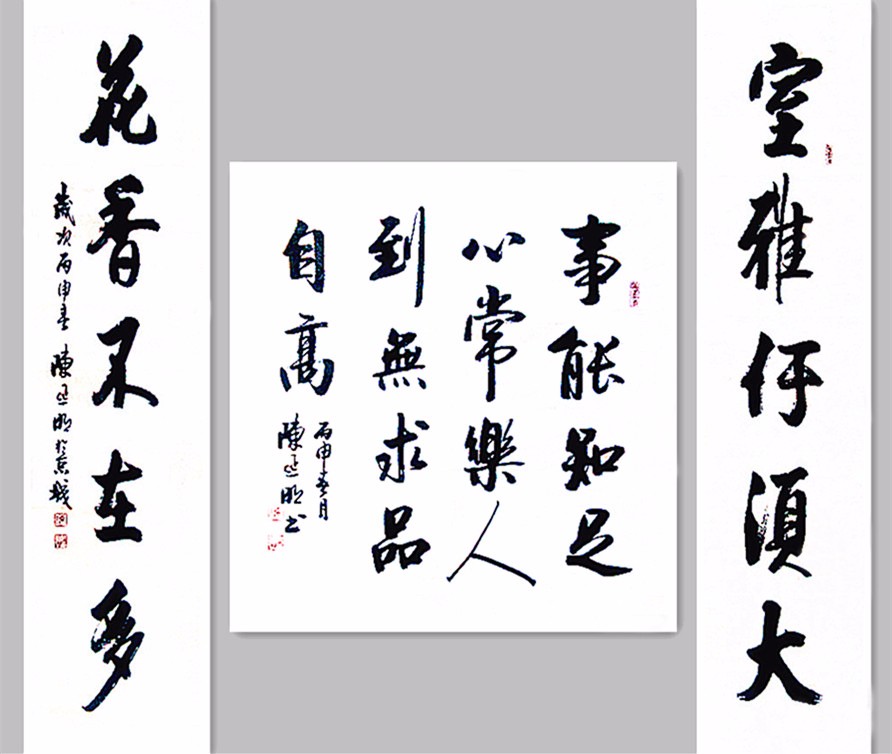 室雅何須大
事能知足
心常樂人
到無求品
自高
丙申春月
陳明書
花香不在多
歲次丙申春 陳明於京城